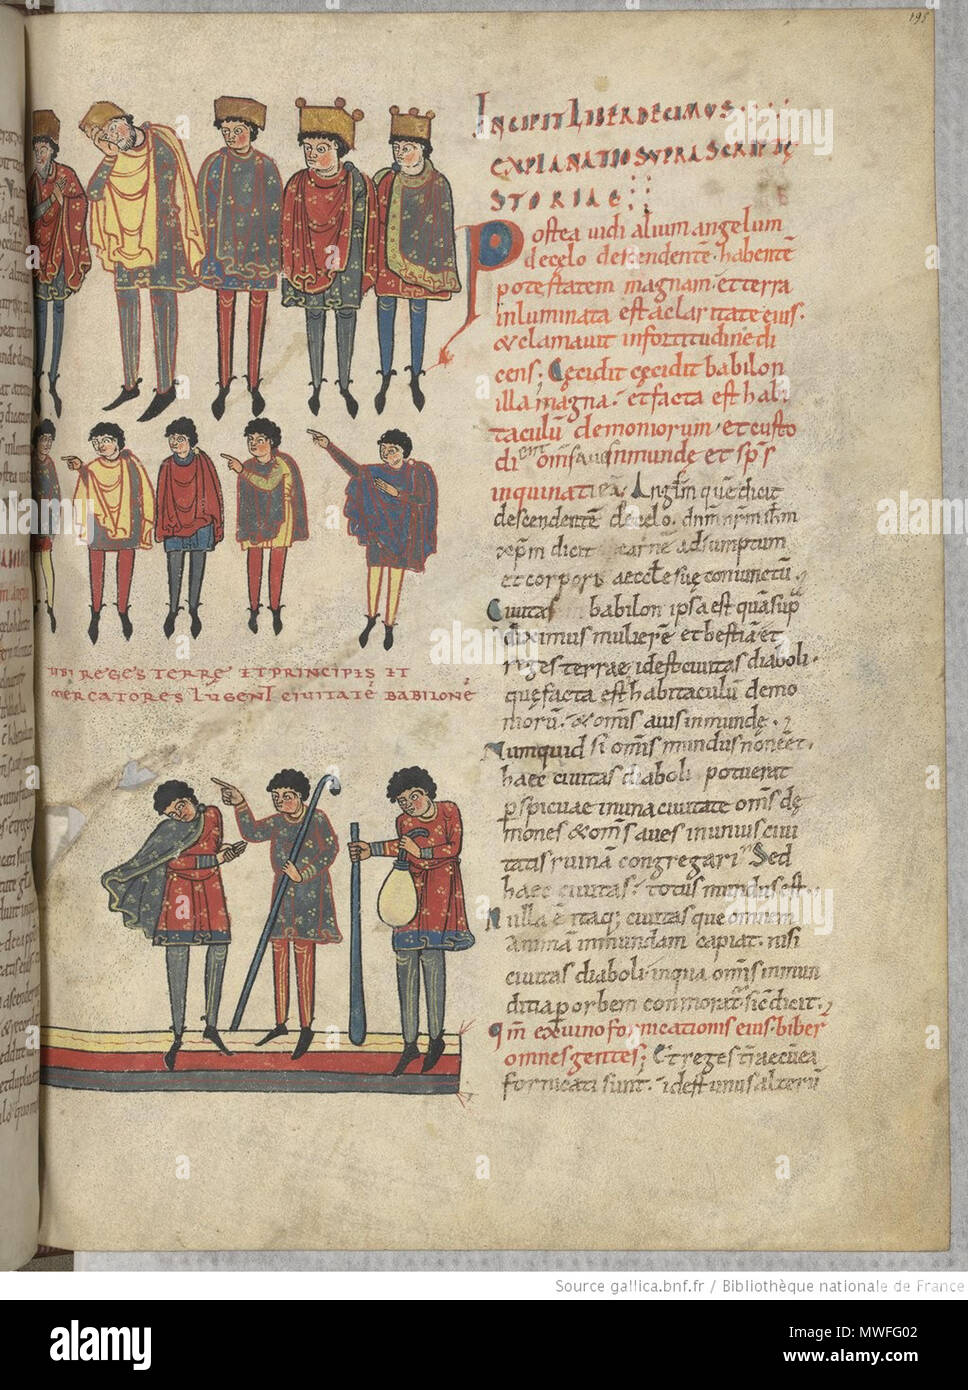 198
INCIPIT LIBER DECIMUS
EXPLANATIO SUPRASCRIPTE
STORIAE
Postea uidi alium angelum
de celo descendentē habentē
potestatem magnam et terra
inluminata est a claritate eius.
& clamauit in fortitudine di
cens. Cecidit cecidit babilon
illa magna. et facta est habi
taculū demoniorum et custo
di omīs aues inmundę et sp̄s
inquinati Angl̄m quē dicit
descendentē de celo. dn̄m nr̄m ih̄m
xp̄m dicit carnē adsumptum
et corporis aeccl̄e suę coniunctū
Ciuitas babilon ipsa est quā sup̄
diximus mulierē et bestiā et
reges terrae id est ciuitas diaboli
quę facta est habitaculū demo
niorū. & omīs auis inmundę
Numquid si omīs mundus non eēt
haec ciuitas diaboli poterat
perspicuae in una ciuitate omīs dę
mones & omīs aues in unius ciui
tatis ruinā congregari Sed
haec ciuitas totus mundus est.
Nulla ē itaq; ciuitas que omnem
animā inmundam capiat. nisi
ciuitas diaboli in qua omīs inmun
ditia per orbem conmorat̄ sic̄ dicit.
Qm̄ ex uino fornicationis eius biber
omnes gentes; Et reges t̄rae cū ea
fornicati sunt. id est unus alterū
UBI REGES TERRĘ ET PRINCIPIS ET
MERCATORES LUGENT CIUITATĒ BABILONĒ
Source gallica.bnf.fr / Bibliothèque nationale de France
alamy
Image ID: MWFG02
www.alamy.com